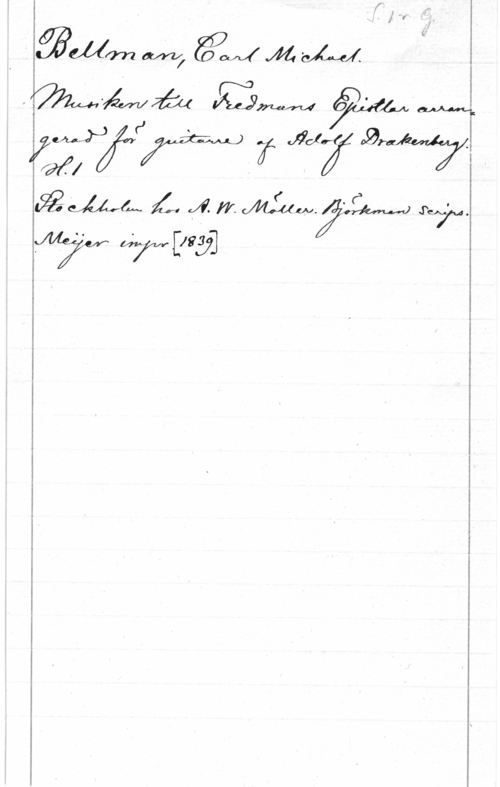 S. 1 r g.
Bellman, Carl Michael.
Musiken till Fredmans Epistlar arran=
gerad för guitarre af Adolf Drakenberg.
H.1
Stockholm hos A. W. Möller. Björkman scrips.
Meijer impr [1839]